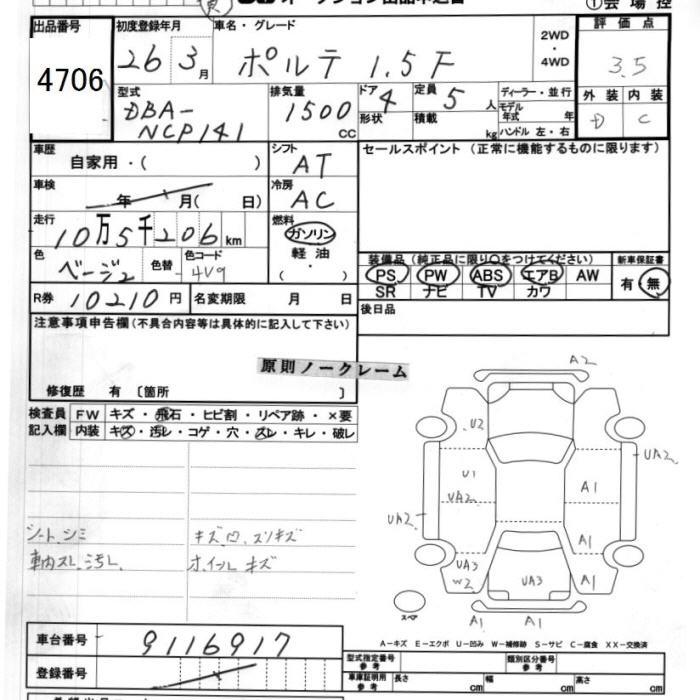 ①会場控
出品番号
4706
初度登録年月
26 3月
車名・グレード
ポルテ 1.5F
2WD
・
4WD
評価点
3.5
外装 内装
D C
型式
DBA-
NCP141
排気量
1500
CC
ドア 4
形状
定員 5 人
積載 kg
ディーラー・並行
モデル年式 年
ハンドル 左・右
車歴
自家用・( )
シフト
AT
セールスポイント (正常に機能するものに限ります)
車検
年 月( 日)
冷房
AC
走行
10万5千206km
燃料
ガソリン
軽油
( ・ )
色
ベージュ
色替
色コード
4V9
装備品 (純正品に限り〇をつけてください)
PS PW ABS エアB AW
SR ナビ TV カワ
新車保証書
有・無
R券 10210円
名変期限 月 日
後日品
注意事項申告欄(不具合内容等は具体的に記入して下さい)
原則ノークレーム
修復歴 有〔箇所 〕
検査員
記入欄
FW キズ・飛石・ヒビ割・リペア跡・×要
内装 キズ・汚レ・コゲ・穴・スレ・キレ・破レ
シート、シミ
車内スレ、汚レ
キズ、凹、スリキズ
ホイールキズ
A2
U2
UA2
U1
UA2
A1
UA2
A1
UA3
W2
UA3
A1
A1
A1
スペア
A-キズ E-エクボ U-凹み W-補修跡 S-サビ C-腐食 XX-交換済
車台番号
9116917
登録番号
型式指定番号
参考
類別区分番号
参考
車庫証明用
参考
長さ cm
幅 cm
高さ cm